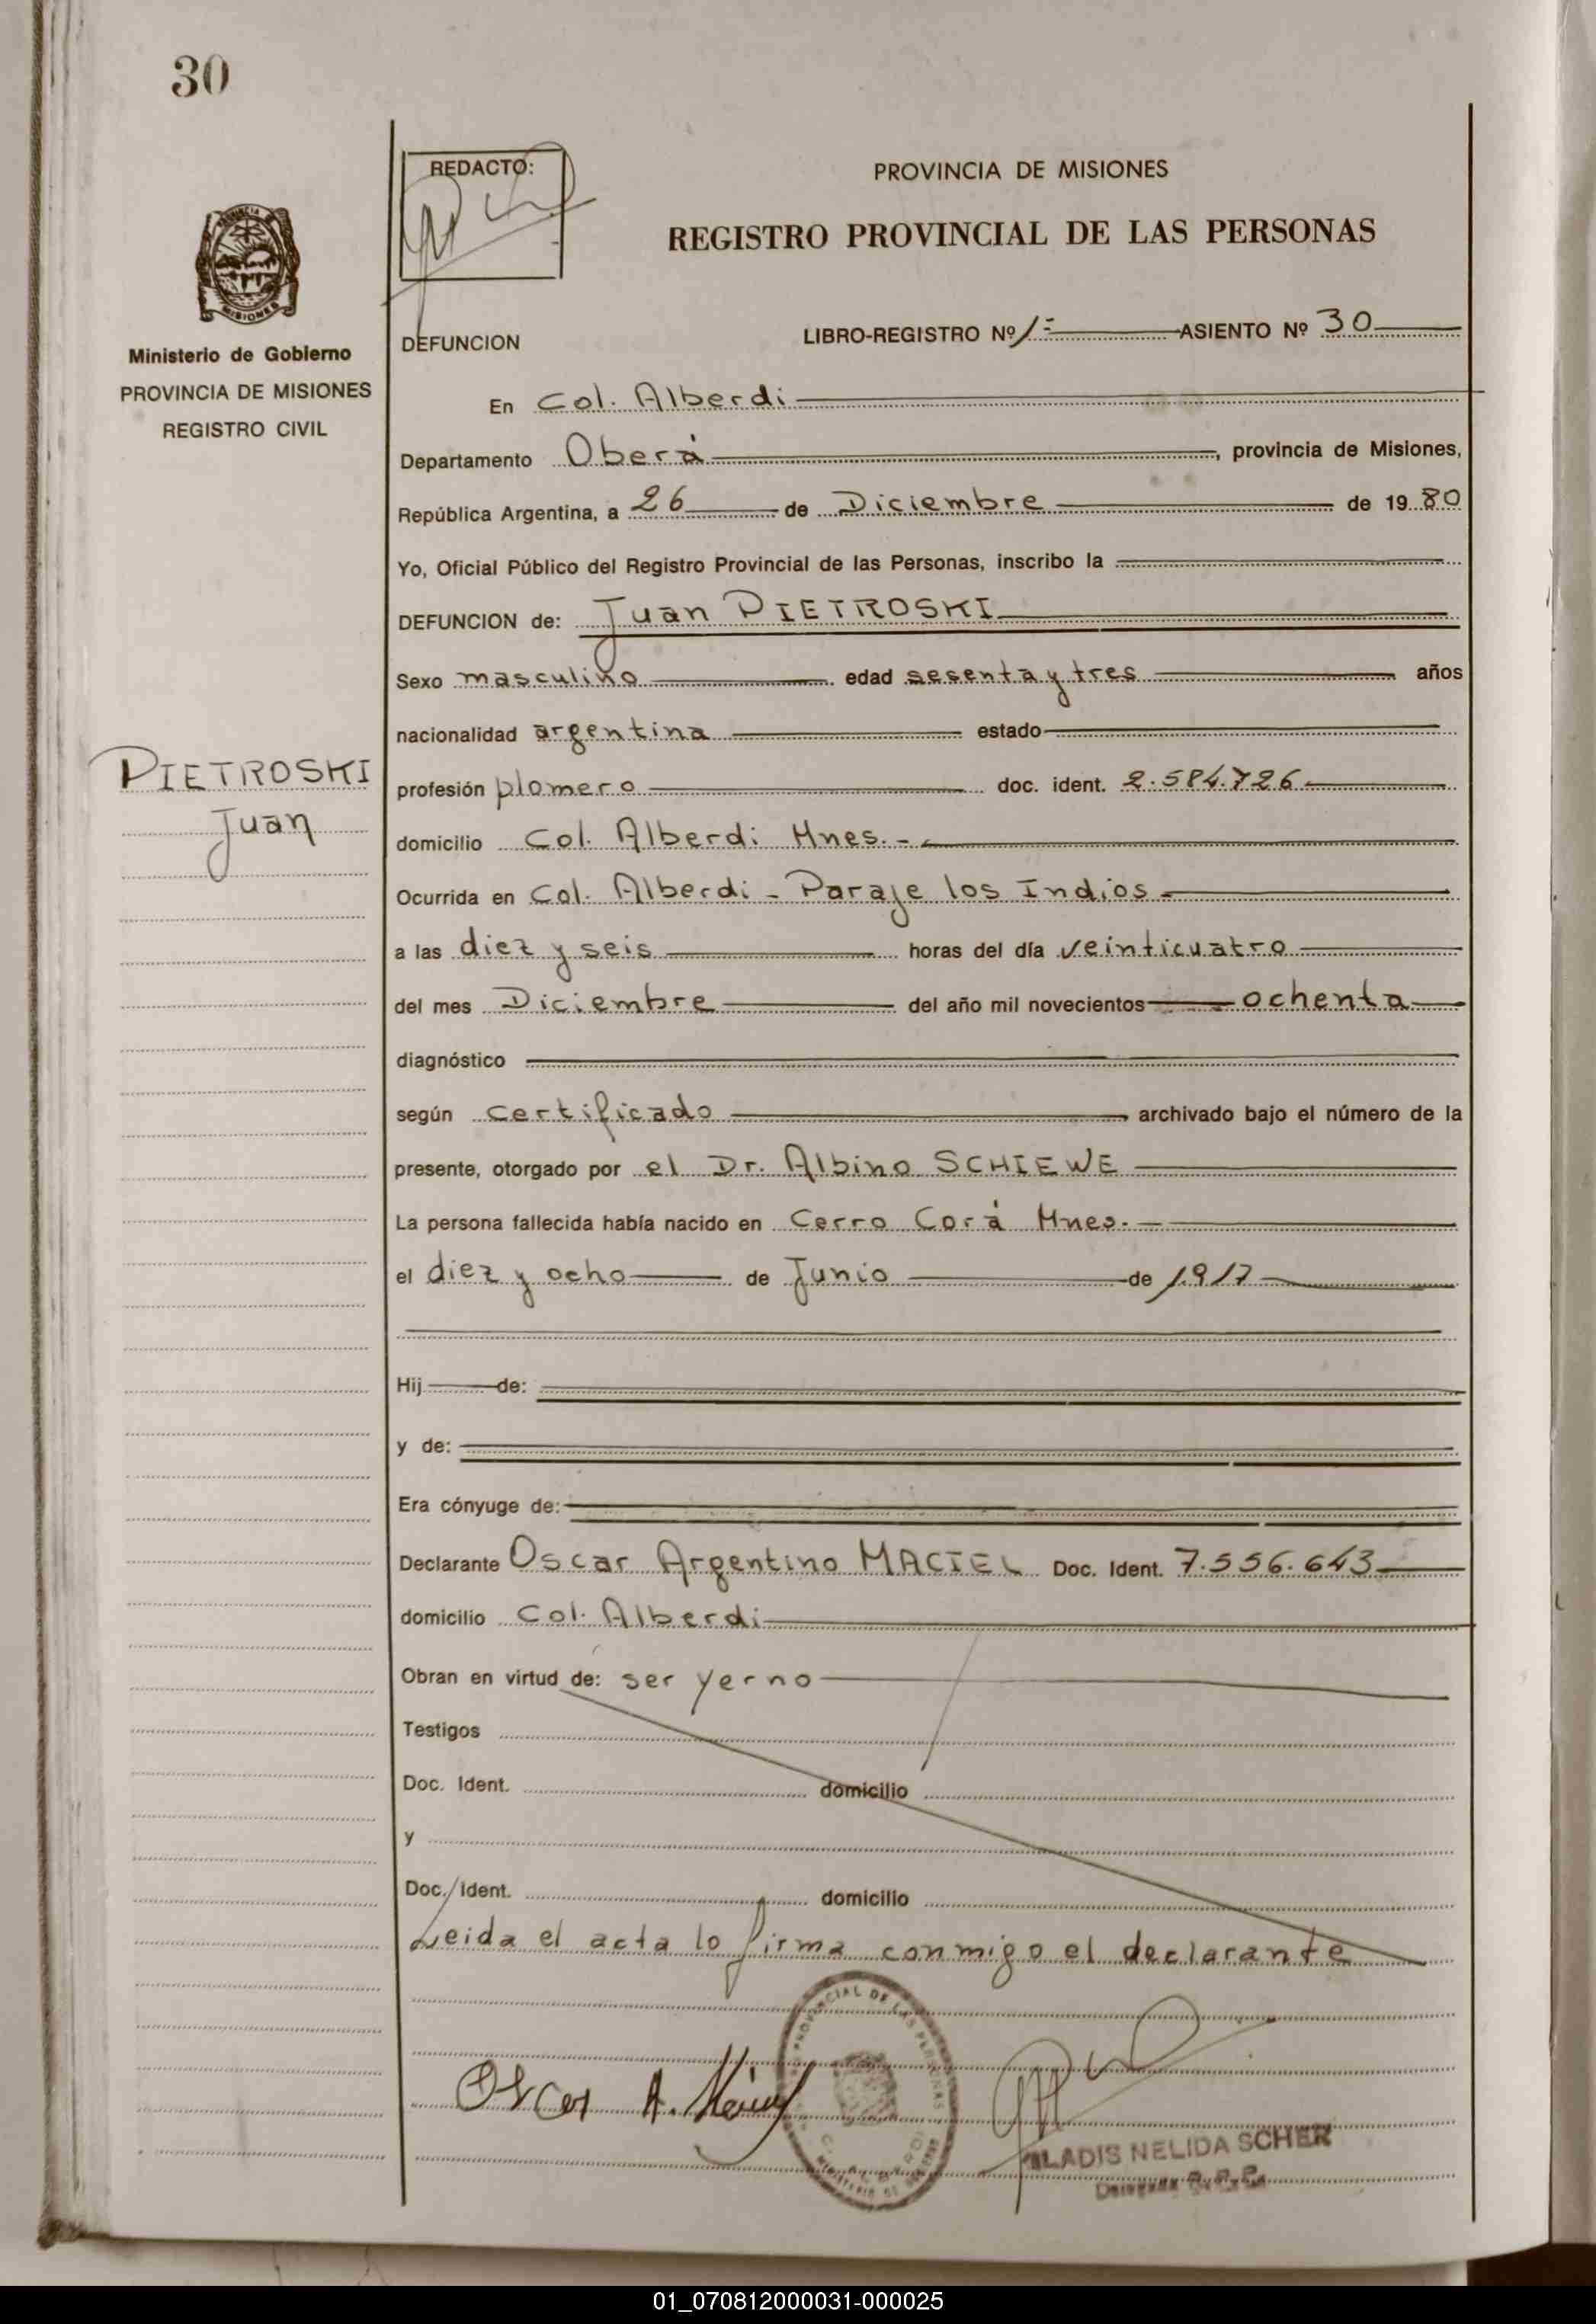 30
REDACTO:
PROVINCIA DE MISIONES
REGISTRO PROVINCIAL DE LAS PERSONAS
PROVINCIA DE
MISIONES
Ministerio de Gobierno
PROVINCIA DE MISIONES
REGISTRO CIVIL
DEFUNCION
LIBRO-REGISTRO Nº 1= ASIENTO Nº 30
En Col. Alberdi
Departamento Oberá, provincia de Misiones,
República Argentina, a 26 de Diciembre de 1980
Yo, Oficial Público del Registro Provincial de las Personas, inscribo la
DEFUNCION de: Juan PIETROSKI
Sexo masculino edad sesenta y tres años
nacionalidad argentina estado
PIETROSKI
Juan
profesión plomero doc. ident. 2.584.726
domicilio Col. Alberdi Mnes.-
Ocurrida en Col. Alberdi - Paraje los Indios
a las diez y seis horas del día veinticuatro
del mes Diciembre del año mil novecientos ochenta
diagnóstico
según certificado archivado bajo el número de la
presente, otorgado por el Dr. Albino SCHIEWE
La persona fallecida había nacido en Cerro Corá Mnes.-
el diez y ocho de Junio de 1917
Hij de:
y de:
Era cónyuge de:
Declarante Oscar Argentino MACIEL Doc. Ident. 7.556.643
domicilio Col. Alberdi
Obran en virtud de: ser yerno
Testigos
Doc. Ident. domicilio
y
Doc. Ident. domicilio
Leida el acta lo firma conmigo el declarante
PROVINCIAL DE LAS PERSONAS
Oscar A.
GLADIS NELIDA SCHER
01_070812000031-000025